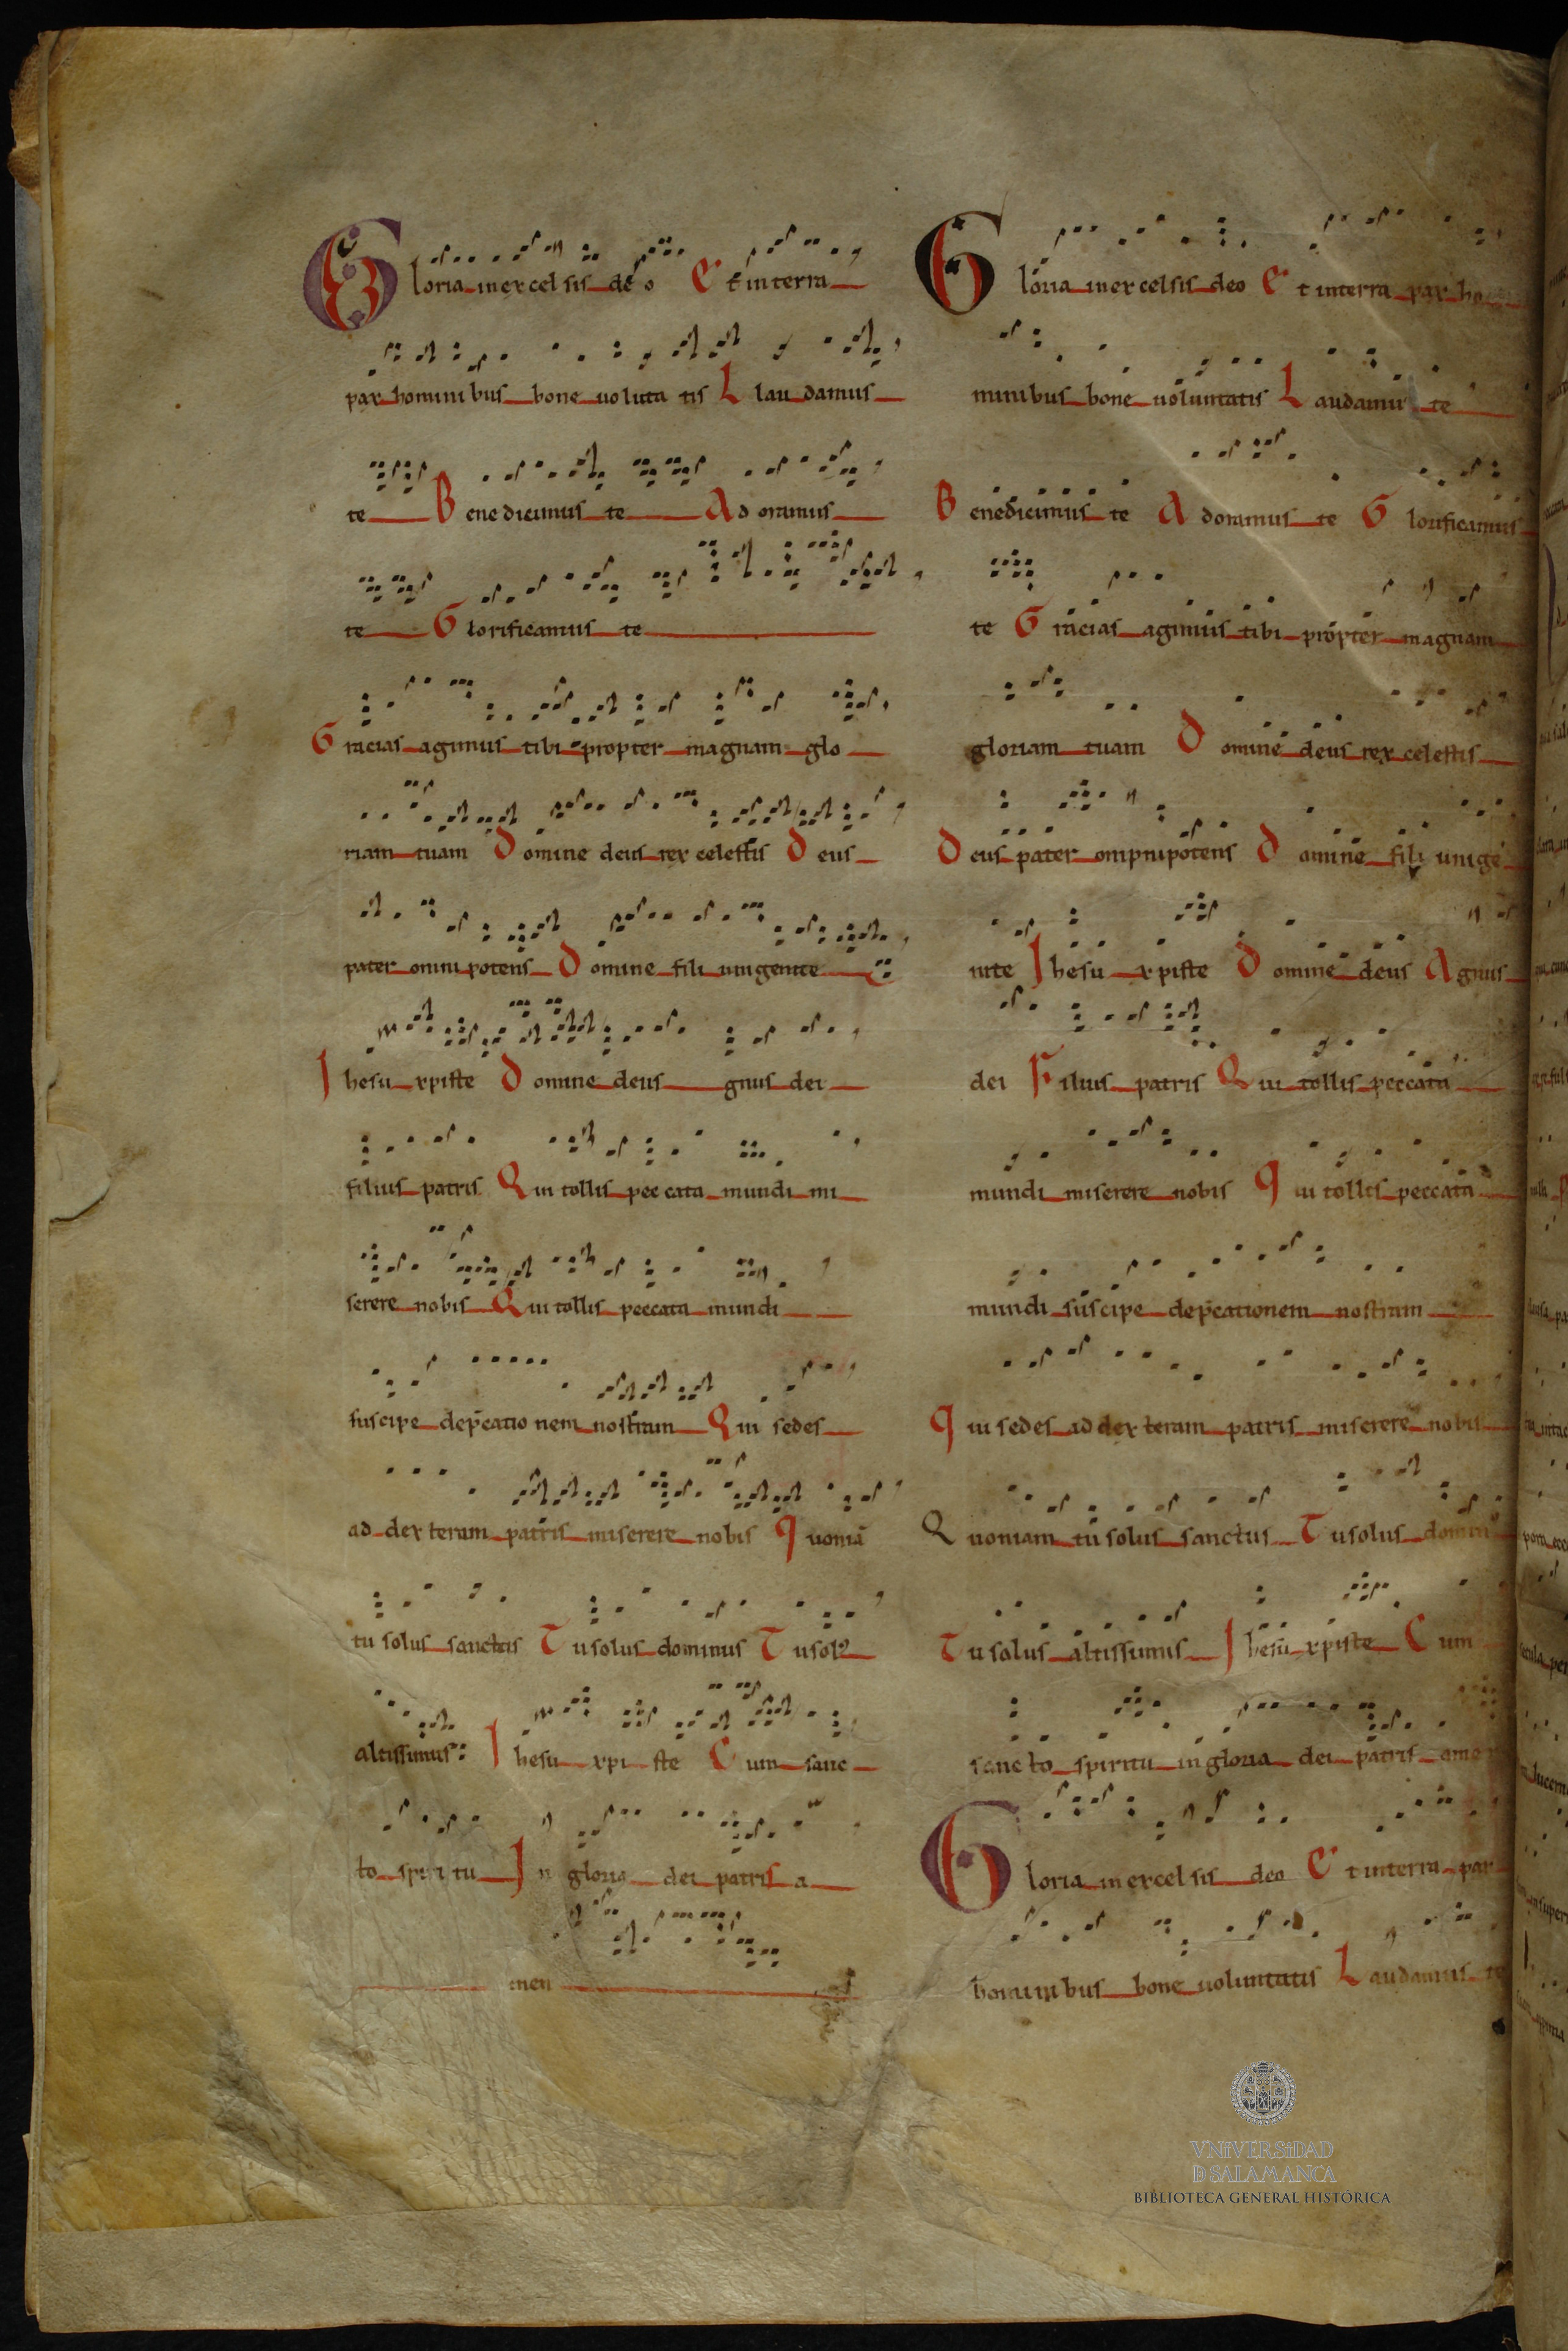 Gloria in excelsis deo Et in terra
pax hominibus bone volūta tis L laudamus
te Benedicimus te Adoramus
te Glorificamus te
Gracias agimus tibi propter magnam glo
riam tuam Domine deus rex celestis Deus
pater omnipotens Domine fili unigenite
Ihesu xpiste Domine deus gnus dei
filius patris Qui tollis peccata mundi mi
serere nobis Qui tollis peccata mundi
suscipe dep̄cationem nostram Qui sedes
ad dexteram patris miserere nobis Quoniā
tu solus sanctus Tu solus dominus Tu sol9
altissimus: Ihesu xpiste Cum sanc
to spiritu In gloria dei patris a
men
Gloria in excelsis deo Et in terra pax ho
minibus bone voluntatis Laudamus te
Benedicimus te Adoramus te Glorificamus
te Gracias agimus tibi propter magnam
gloriam tuam Domine deus rex celestis
Deus pater omnipotens Domine fili unige
nite Ihesu xpiste Domine deus Agnus
dei Filius patris Qui tollis peccata
mundi miserere nobis Qui tollis peccata
mundi suscipe dep̄cationem nostram
Qui sedes ad dexteram patris miserere nobis
Quoniam tu solus sanctus Tu solus domin9
Tu solus altissimus Ihesu xpiste Cum
sancto spiritu in gloria dei patris amen
Gloria in excelsis deo Et in terra pax
hominibus bone voluntatis Laudamus te
VNiVERSiDAD
D SALAMANCA
BIBLIOTECA GENERAL HISTÓRICA